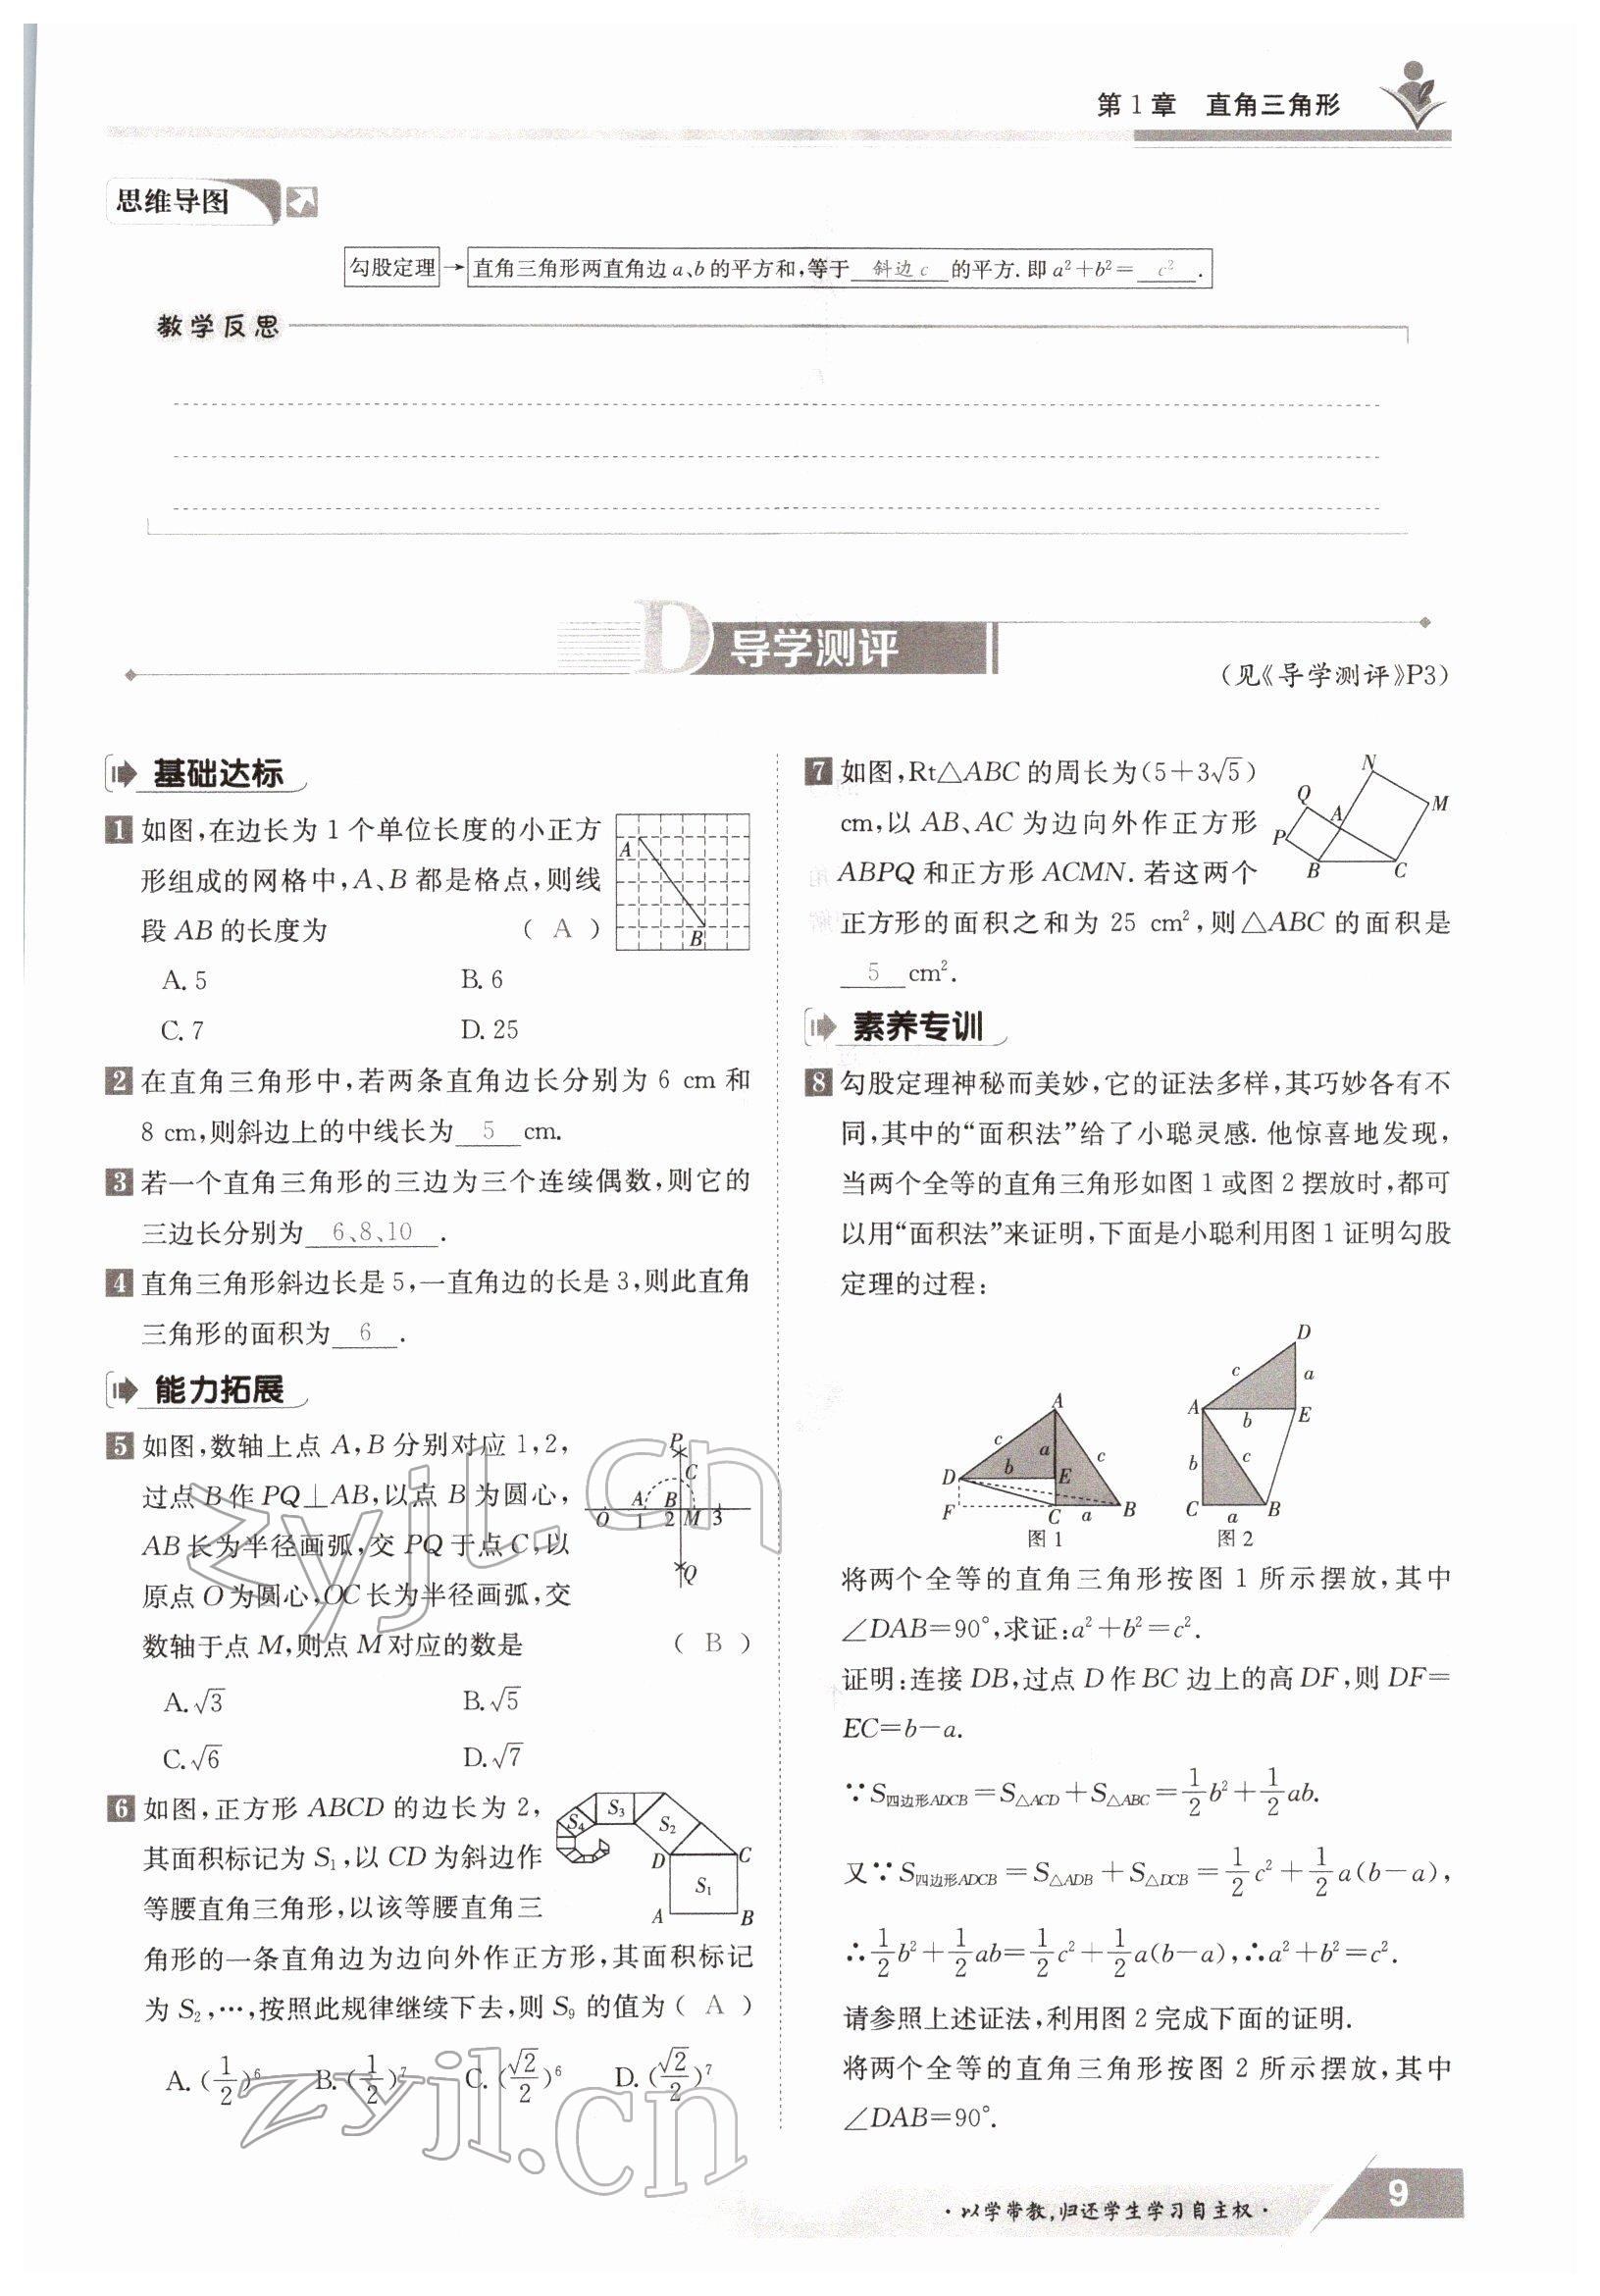 第1章 直角三角形
思维导图
勾股定理 → 直角三角形两直角边a、b的平方和,等于 斜边c 的平方.即a²+b²= c² .
教学反思
D 导学测评
(见《导学测评》P3)
基础达标
1 如图,在边长为1个单位长度的小正方
形组成的网格中,A、B都是格点,则线
段AB的长度为 ( A )
A
B
A. 5 B. 6
C. 7 D. 25
2 在直角三角形中,若两条直角边长分别为6 cm和
8 cm,则斜边上的中线长为 5 cm.
3 若一个直角三角形的三边为三个连续偶数,则它的
三边长分别为 6、8、10 .
4 直角三角形斜边长是5,一直角边的长是3,则此直角
三角形的面积为 6 .
能力拓展
5 如图,数轴上点A,B分别对应1,2,
过点B作PQ⊥AB,以点B为圆心,
AB长为半径画弧,交PQ于点C,以
原点O为圆心,OC长为半径画弧,交
数轴于点M,则点M对应的数是 ( B )
P
C
A B
O 1 2 M 3
Q
A.√3 B.√5
C.√6 D.√7
6 如图,正方形ABCD的边长为2,
其面积标记为S₁,以CD为斜边作
等腰直角三角形,以该等腰直角三
角形的一条直角边为边向外作正方形,其面积标记
为S₂,…,按照此规律继续下去,则S₉的值为( A )
S₄ S₃ S₂
D C
S₁
A B
A. (1/2)⁶ B. (1/2)⁷ C. (√2/2)⁶ D. (√2/2)⁷
7 如图,Rt△ABC的周长为(5+3√5)
cm,以AB、AC为边向外作正方形
ABPQ和正方形ACMN.若这两个
正方形的面积之和为25 cm²,则△ABC的面积是
5 cm².
N
Q M
A
P
B C
素养专训
8 勾股定理神秘而美妙,它的证法多样,其巧妙各有不
同,其中的“面积法”给了小聪灵感.他惊喜地发现,
当两个全等的直角三角形如图1或图2摆放时,都可
以用“面积法”来证明,下面是小聪利用图1证明勾股
定理的过程:
A
c a c
D b E
F C a B
图1
D
c a
A b E
b c
C a B
图2
将两个全等的直角三角形按图1所示摆放,其中
∠DAB=90°,求证:a²+b²=c².
证明:连接DB,过点D作BC边上的高DF,则DF=
EC=b-a.
∵S四边形ADCB=S△ACD+S△ABC=1/2b²+1/2ab.
又∵S四边形ADCB=S△ADB+S△DCB=1/2c²+1/2a(b-a),
∴1/2b²+1/2ab=1/2c²+1/2a(b-a),∴a²+b²=c².
请参照上述证法,利用图2完成下面的证明.
将两个全等的直角三角形按图2所示摆放,其中
∠DAB=90°.
zyjl.cn
zyjl.cn
·以学带教,归还学生学习自主权·
9